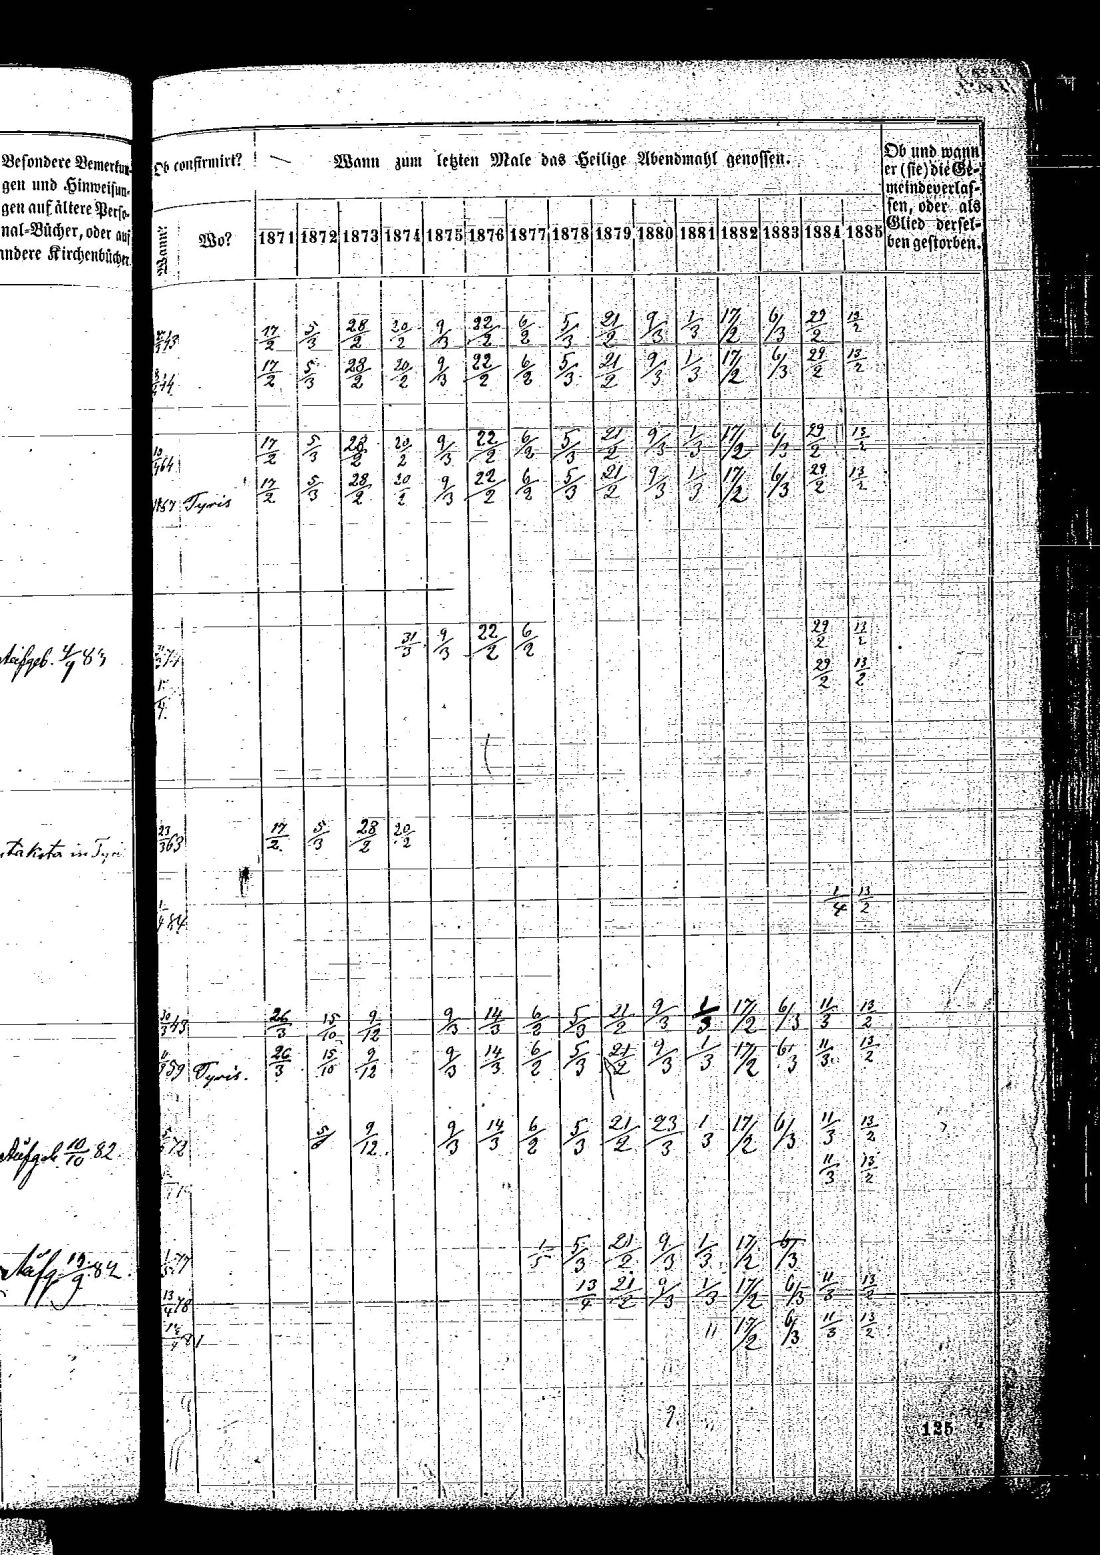 Besondere Bemerkun-
gen und Hinweisun-
gen auf ältere Perso-
nal-Bücher, oder auf
andere Kirchenbücher.
Ob confirmirt?
Wann zum letzten Male das Heilige Abendmahl genossen.
Ob und wann
er (sie) die Ge-
meinde verlas-
sen, oder als
Glied dersel-
ben gestorben.
Wann? Wo? 1871 1872 1873 1874 1875 1876 1877 1878 1879 1880 1881 1882 1883 1884 1885
17/2 5/3 28/2 20/2 9/3 22/2 6/2 5/3 21/2 9/3 1/3 17/2 6/3 29/2 13/2
17/2 5/3 28/2 20/2 9/3 22/2 6/2 5/3 21/2 9/3 1/3 17/2 6/3 29/2 13/2
64 17/2 5/3 28/2 20/2 9/3 22/2 6/2 5/3 21/2 9/3 1/3 17/2 6/3 29/2 13/2
Tyris 17/2 5/3 28/2 20/2 9/3 22/2 6/2 5/3 21/2 9/3 1/3 17/2 6/3 29/2 13/2
31/3 9/3 22/2 6/2 29/2 13/2
Aufgeb. 4/9 83
29/2 13/2
23/3 63 17/2 5/3 28/2 20/2 in
84 1/4 13/2
43 26/3 15/10 9/12 9/3 14/3 6/2 5/3 21/2 9/3 1/3 17/2 6/3 11/3 13/2
59 Tyris. 26/3 15/10 9/12 9/3 14/3 6/2 5/3 21/2 9/3 1/3 17/2 6/3 11/3 13/2
Aufgeb. 10/10 82. 72 9/12 9/3 14/3 6/2 5/3 21/2 23/3 1/3 17/2 6/3 11/3 13/2
11/3 13/2
77 5/3 21/2 9/3 1/3 17/2 6/3
Aufg. 84.
13/4 78 13/4 21/2 9/3 1/3 17/2 6/3 11/3 13/2
81 11 17/2 6/3 11/3 13/2
125